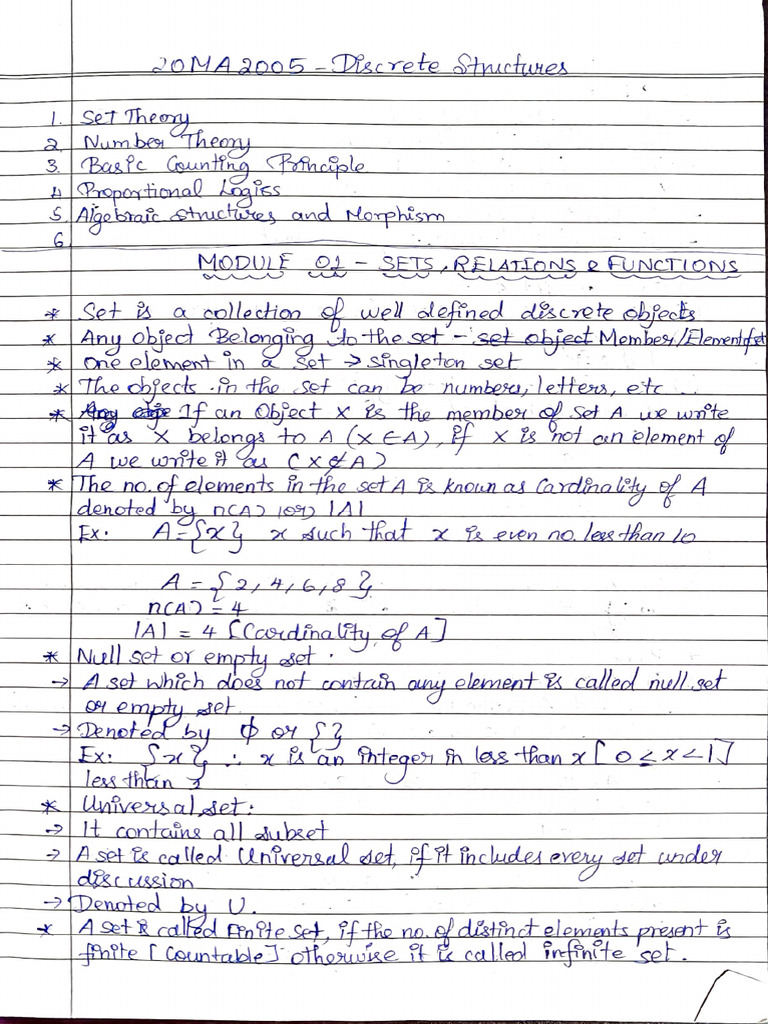 20MA2005 - Discrete Structures
1. Set Theory
2. Number Theory
3. Basic Counting Principle
4. Proportional Logics
5. Algebraic structures and Morphism
6
MODULE 01 - SETS, RELATIONS & FUNCTIONS
* Set is a collection of well defined discrete objects
* Any object Belonging to the set - set object Member/Element of set
* One element in a set → singleton set
* The objects in the set can be numbers, letters, etc ...
* If an Object x is the member of set A we write
it as x belongs to A (x ∈ A), if x is not an element of
A we write it as (x ∉ A)
* The no. of elements in the set A is known as Cardinality of A
denoted by n(A) (or) |A|
Ex: A = {x} x such that x is even no. less than 10
A = {2, 4, 6, 8}
n(A) = 4
|A| = 4 [Cardinality of A]
* Null set or empty set.
→ A set which does not contain any element is called null set
or empty set
→ Denoted by ϕ or { }
Ex: {x} ∴ x is an integer in less than x [0 ≤ x < 1]
less than
* Universal set:
→ It contains all subset
→ A set is called Universal set, if it includes every set under
discussion
→ Denoted by U.
* A set is called Finite set, if the no. of distinct elements present is
finite [Countable] otherwise it is called infinite set.